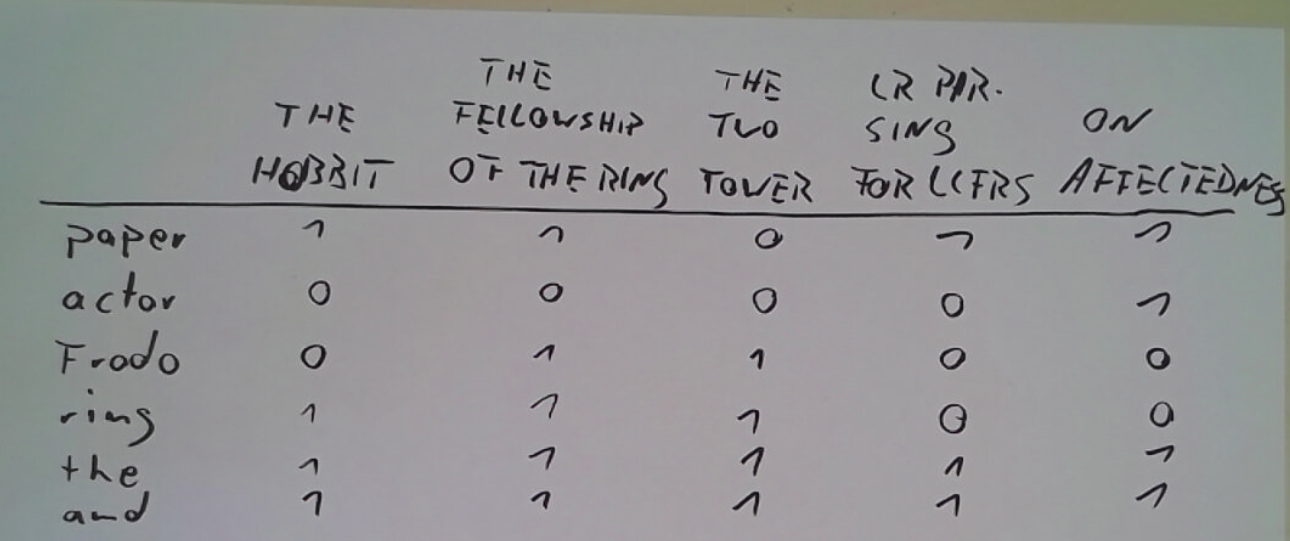 THE HOBBIT THE FELLOWSHIP OF THE RING THE TWO TOWER LR PAR- SING FOR LCFRS ON AFFECTEDNESS
paper 1 1 0 1 1
actor 0 0 0 0 1
Frodo 0 1 1 0 0
ring 1 1 1 0 0
the 1 1 1 1 1
and 1 1 1 1 1